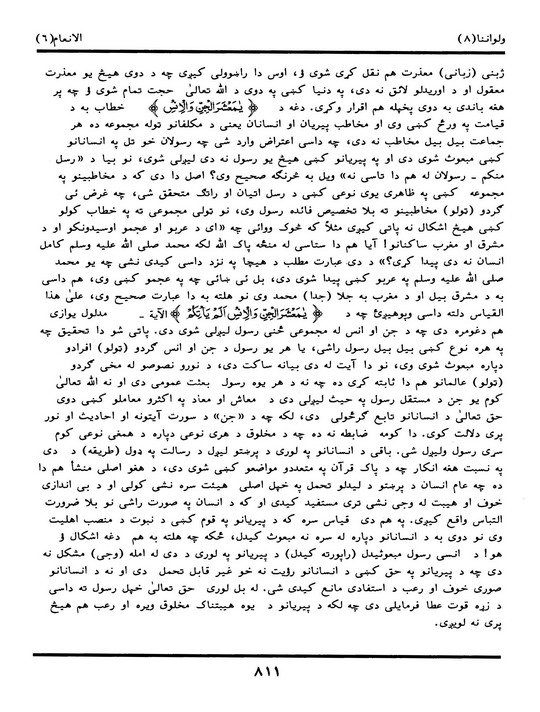 ولواننا(۸)
الانعام(٦)
ژبنی (زبانی) معذرت هم نقل کړی شوی ؤ، اوس دا راښوولی کیږی چه د دوی هیڅ یو معذرت
معقول او د اوریدلو لائق نه دی، په دنیا کښی په دوی د الله تعالیٰ حجت تمام شوی ؤ چه پر
هغه باندی به دوی پخپله هم اقرار وکړی. دغه د ﴿ يٰمَعْشَرَ الْجِنِّ وَالْاِنْسِ ﴾ خطاب به د
قیامت په ورځ کښی وی او مخاطب پیریان او انسانان یعنی د مکلفانو توله مجموعه ده هر
جماعت بیل بیل مخاطب نه دی، چه داسی اعتراض وارد شی چه رسولان خو تل په انسانانو
کښی مبعوث شوی دی او په پیریانو کښی هیڅ یو رسول نه دی لیږلی شوی، نو بیا د «رسل
منکم ـ رسولان له هم دا تاسی نه» ویل به څرنګه صحیح وی؟ اصل دا دی که د مخاطبینو په
مجموعه کښی په ظاهری یوی نوعی کښی د رسل اتیان او راتګ متحقق شی، چه غرض ئی
ګردو (تولو) مخاطبینو ته بلا تخصیص فائده رسول وی، نو تولی مجموعی ته په خطاب کولو
کښی هیڅ اشکال نه پاتی کیږی مثلاً که څوک ووائی چه «ای د عربو او عجمو اوسیدونکو او د
مشرق او مغرب ساکنانو! آیا هم دا ستاسی له منځه پاک الله لکه محمد صلی الله علیه وسلم کامل
انسان نه دی پیدا کړی؟» د دی عبارت مطلب د هیچا په نزد داسی کیدی نشی چه یو محمد
صلی الله علیه وسلم په عربو کښی پیدا شوی دی، بل ئی ښائی چه په عجمو کښی وی، هم داسی
به د مشرق بیل او د مغرب به جلا (جدا) محمد وی نو هلته به دا عبارت صحیح وی، علیٰ هذا
القیاس دلته داسی وپوهیږئ چه د ﴿ يٰمَعْشَرَ الْجِنِّ وَالْاِنْسِ اَلَمْ يَاْتِكُمْ ﴾ الآیة ـ مدلول یوازی
هم دغومره دی چه د جن او انس له مجموعی څنی رسول لیږلی شوی دی. پاتی شو دا تحقیق چه
په هره نوع کښی بیل بیل رسول راشی، یا هر یو رسول د جن او انس ګردو (تولو) افرادو
دپاره مبعوث شوی وی، نو دا آیت له دی بیانه ساکت دی، د نورو نصوصو له مخی ګردو
(تولو) عالمانو هم دا ثابته کړی ده چه نه د هر یوه رسول بعثت عمومی دی او نه الله تعالیٰ
کوم یو جن د مستقل رسول په حیث لیږلی دی د معاش او معاد په اکثرو معاملو کښی دوی
حق تعالیٰ د انسانانو تابع ګرځولی دی، لکه چه د «جن» د سورت آیتونه او احادیث او نور
پری دلالت کوی. دا کومه ضابطه نه ده چه د مخلوق د هری نوعی دپاره د همغی نوعی کوم
سری رسول ولیږل شی. باقی د انسانانو په لوری د پرښتو لیږل د رسالت په دول (طریقه) د دی
په نسبت هغه انکار چه د پاک قرآن په متعددو مواضعو کښی شوی دی، د هغو اصلی منشأ هم دا
ده چه عام انسان د پرښتو د لیدلو تحمل په خپل اصلی هیئت سره نشی کولی او د بی اندازی
خوف او هیبت له وجی نشی تری مستفید کیدی او که د انسان په صورت راشی نو بلا ضرورت
التباس واقع کیږی. په هم دی قیاس سره که د پیریانو په قوم کښی د نبوت د منصب اهلیت
وی نو دوی به د انسانانو دپاره له سره نه مبعوث کیدل، ځکه چه هلته به هم دغه اشکال ؤ
هو! د انسی رسول مبعوثیدل (راپورته کیدل) د پیریانو په لوری د دی له امله (وجی) مشکل نه
دی چه د پیریانو په حق کښی د انسانانو رؤیت نه خو غیر قابل تحمل دی او نه د انسانانو
صوری خوف او رعب د استفادی مانع کیدی شی. له بل لوری حق تعالیٰ خپل رسول ته داسی
د زړه قوت عطا فرمایلی دی چه لکه د پیریانو د یوه هیبتناک مخلوق ویره او رعب هم هیڅ
پری نه لویږی.
۸۱۱